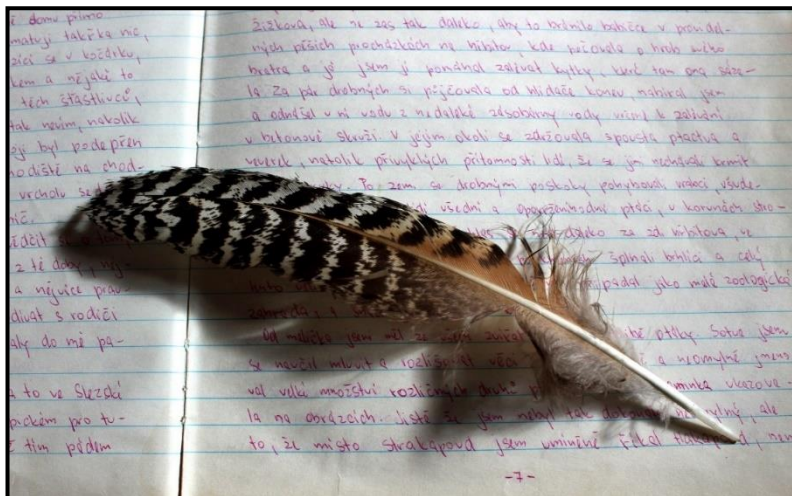 domu přímo
matuji takřka nic,
zící se v kočárku,
kem a nějaké to
těch šťastlivců,
tak nevím, nakolik
byl podepřen
hodiště na chod-
vrcholu
z té doby,
a nejvíce prav-
dívat s rodiči
aby do mě pa-
a to ve Slezské
pro tu-
tím pádem
Žižkova, ale ne zas tak daleko, aby to bránilo babičce v pravidel-
ných pěších procházkách na hřbitov, kde pečovala o hrob svého
bratra a já jsem jí pomáhal zalévat kytky, které tam ona sáze-
la. Za pár drobných si půjčovala od hlídače konev, nabíral jsem
a odnášel v ní vodu z nedaleké zásobárny vody určené k zalévání
v betonové skruži. V jejím okolí se zdržovala spousta ptactva a
veverek, natolik přivyklých přítomnosti lidí, že se jim nechávali krmit
Po zem se drobnými poskoky pohybovali vrabci všude-
všední a ptáci, v korunách stro-
za zdí hřbitova, ve
šplhal brhlík a celý
jako malá zoologická
zahrada,
Od malička jsem měl ze všech zvířat ptáky. Sotva jsem
se naučil mluvit a rozlišovat věci a neomylně jmeno-
val velké množství rozličných druhů maminka ukazova-
la na obrázcích. Jistě že jsem nebyl tak dokonale neomylný, ale
to, že místo strakapoud jsem umíněně říkal
-7-